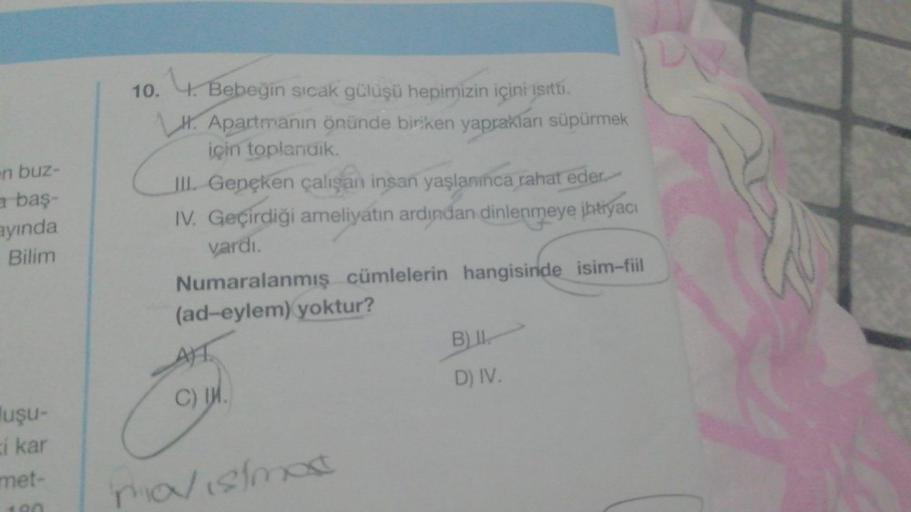 10. I. Bebeğin sıcak gülüşü hepimizin içini ısıttı.
II. Apartmanın önünde biriken yaprakları süpürmek
için toplandık.
III. Gençken çalışan insan yaşlanınca rahat eder.
IV. Geçirdiği ameliyatın ardından dinlenmeye ihtiyacı
vardı.
Numaralanmış cümlelerin hangisinde isim-fiil
(ad-eylem) yoktur?
A) I.
B) II.
C) III.
D) IV.
n buz-
a baş-
ayında
Bilim
luşu-
ki kar
met-
180